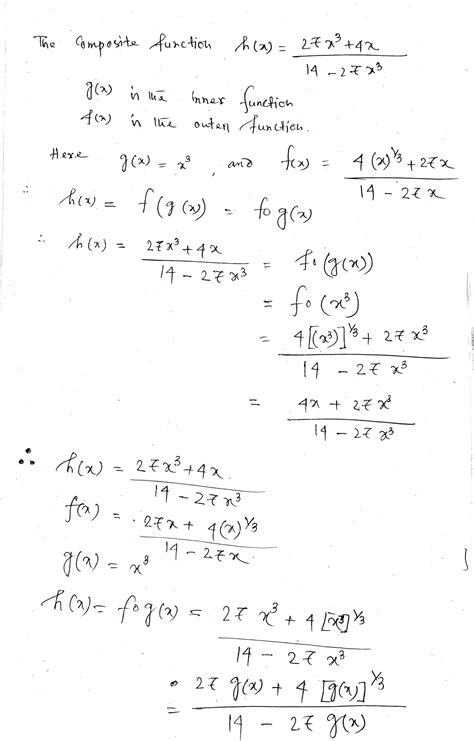 The Composite function h(x) = 27x³+4x / 14 - 27x³
g(x) is the inner function
f(x) is the outer function.
Here g(x) = x³, and f(x) = 4(x)^1/3 + 27x / 14 - 27x
∴ h(x) = f(g(x)) = fog(x)
∴ h(x) = 27x³+4x / 14 - 27x³ = fo(g(x))
= fo(x³)
= 4[(x³)]^1/3 + 27x³ / 14 - 27x³
= 4x + 27x³ / 14 - 27x³
∴ h(x) = 27x³+4x / 14 - 27x³
f(x) = 27x + 4(x)^1/3 / 14 - 27x
g(x) = x³
h(x) = fog(x) = 27x³ + 4[x³]^1/3 / 14 - 27x³
= 27 g(x) + 4 [g(x)]^1/3 / 14 - 27 g(x)